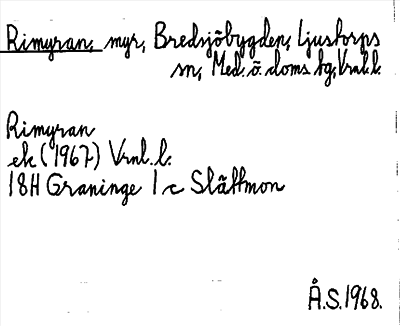 Rimyran, myr, Bredsjöbygden, Ljustorps
sn, Med. ö. doms. hg, Vrnl. l.
Rimyran
ek (1967) Vrnl. l.
18H Graninge 1 c Slättmon
Å.S. 1968.